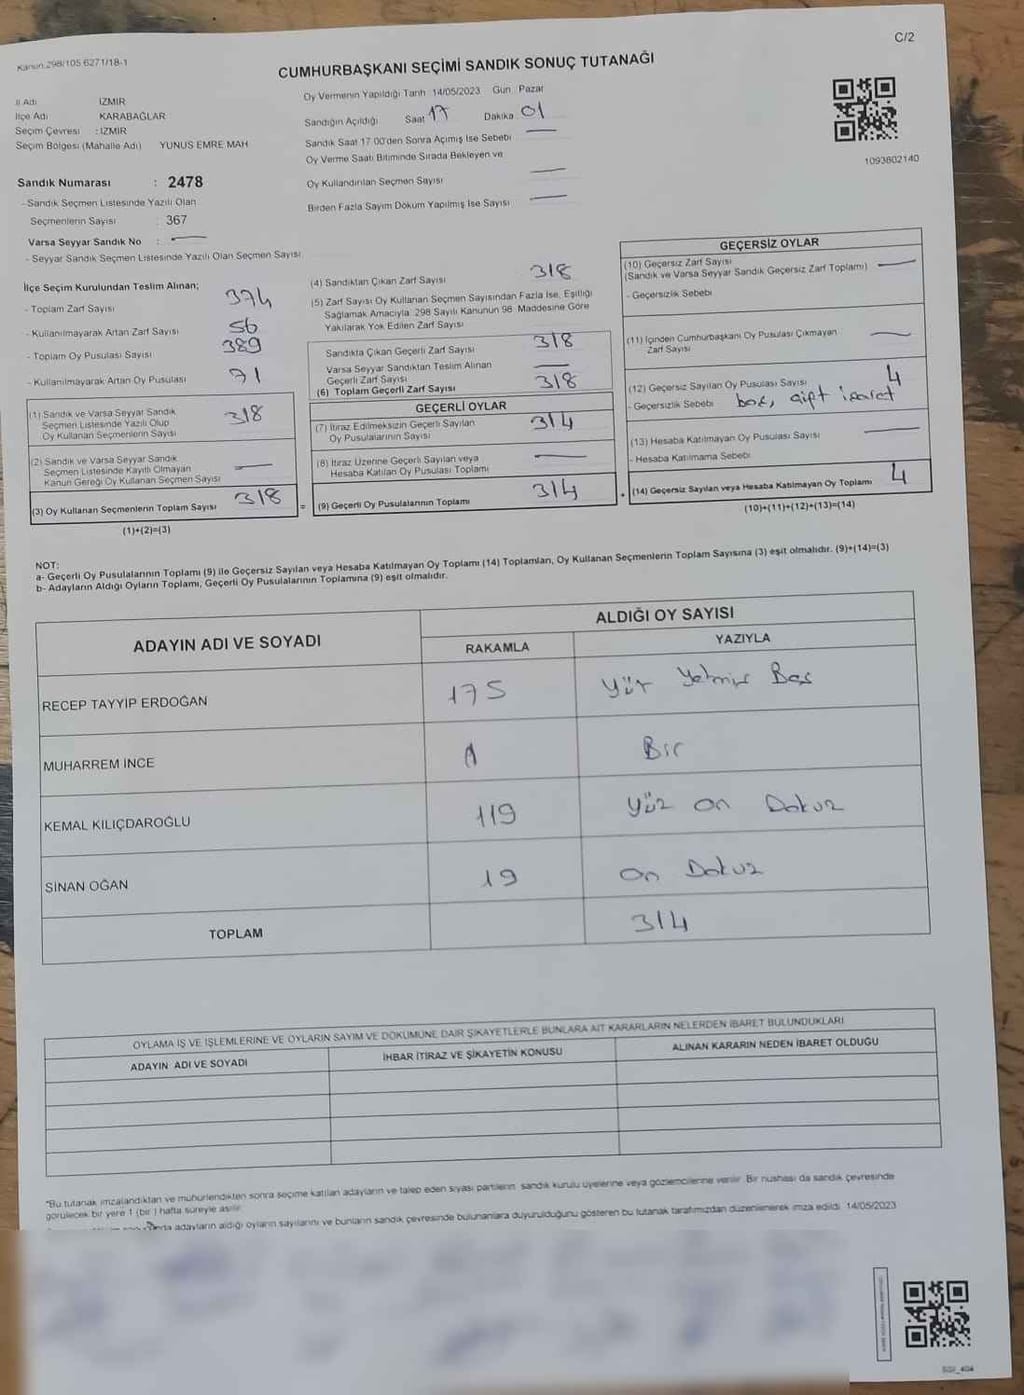 Kanun:298/105 6271/18-1
C/2
CUMHURBAŞKANI SEÇİMİ SANDIK SONUÇ TUTANAĞI
İl Adı İZMİR
İlçe Adı KARABAĞLAR
Seçim Çevresi : İZMİR
Seçim Bölgesi (Mahalle Adı) YUNUS EMRE MAH
Sandık Numarası : 2478
- Sandık Seçmen Listesinde Yazılı Olan
Seçmenlerin Sayısı : 367
Varsa Seyyar Sandık No :
- Seyyar Sandık Seçmen Listesinde Yazılı Olan Seçmen Sayısı
Oy Vermenin Yapıldığı Tarih 14/05/2023 Gün Pazar
Sandığın Açıldığı Saat 17 Dakika 01
Sandık Saat 17.00'den Sonra Açılmış İse Sebebi
Oy Verme Saati Bitiminde Sırada Bekleyen ve
Oy Kullandırılan Seçmen Sayısı
Birden Fazla Sayım Döküm Yapılmış İse Sayısı
1093802140
İlçe Seçim Kurulundan Teslim Alınan;
- Toplam Zarf Sayısı 374
- Kullanılmayarak Artan Zarf Sayısı 56
- Toplam Oy Pusulası Sayısı 389
- Kullanılmayarak Artan Oy Pusulası 71
(1) Sandık ve Varsa Seyyar Sandık
Seçmen Listesinde Yazılı Olup
Oy Kullanan Seçmenlerin Sayısı 318
(2) Sandık ve Varsa Seyyar Sandık
Seçmen Listesinde Kayıtlı Olmayan
Kanun Gereği Oy Kullanan Seçmen Sayısı
(3) Oy Kullanan Seçmenlerin Toplam Sayısı 318
(1)+(2)=(3)
(4) Sandıktan Çıkan Zarf Sayısı 318
(5) Zarf Sayısı Oy Kullanan Seçmen Sayısından Fazla İse, Eşitliği
Sağlamak Amacıyla 298 Sayılı Kanunun 98. Maddesine Göre
Yakılarak Yok Edilen Zarf Sayısı
Sandıkta Çıkan Geçerli Zarf Sayısı 318
Varsa Seyyar Sandıktan Teslim Alınan
Geçerli Zarf Sayısı
(6) Toplam Geçerli Zarf Sayısı 318
GEÇERLİ OYLAR
(7) İtiraz Edilmeksizin Geçerli Sayılan
Oy Pusulalarının Sayısı 314
(8) İtiraz Üzerine Geçerli Sayılan veya
Hesaba Katılan Oy Pusulası Toplamı
= (9) Geçerli Oy Pusulalarının Toplamı 314 +
GEÇERSİZ OYLAR
(10) Geçersiz Zarf Sayısı
(Sandık ve Varsa Seyyar Sandık Geçersiz Zarf Toplamı)
- Geçersizlik Sebebi
(11) İçinden Cumhurbaşkanı Oy Pusulası Çıkmayan
Zarf Sayısı
(12) Geçersiz Sayılan Oy Pusulası Sayısı 4
- Geçersizlik Sebebi boş, çift işaret
(13) Hesaba Katılmayan Oy Pusulası Sayısı
- Hesaba Katılmama Sebebi
(14) Geçersiz Sayılan veya Hesaba Katılmayan Oy Toplamı 4
(10)+(11)+(12)+(13)=(14)
NOT:
a- Geçerli Oy Pusulalarının Toplamı (9) ile Geçersiz Sayılan veya Hesaba Katılmayan Oy Toplamı (14) Toplamları, Oy Kullanan Seçmenlerin Toplam Sayısına (3) eşit olmalıdır. (9)+(14)=(3)
b- Adayların Aldığı Oyların Toplamı, Geçerli Oy Pusulalarının Toplamına (9) eşit olmalıdır.
ADAYIN ADI VE SOYADI ALDIĞI OY SAYISI
RAKAMLA YAZIYLA
RECEP TAYYİP ERDOĞAN 175 Yüz Yetmiş Beş
MUHARREM İNCE 1 Bir
KEMAL KILIÇDAROĞLU 119 Yüz On Dokuz
SİNAN OĞAN 19 On Dokuz
TOPLAM 314
OYLAMA İŞ VE İŞLEMLERİNE VE OYLARIN SAYIM VE DÖKÜMÜNE DAİR ŞİKAYETLERLE BUNLARA AİT KARARLARIN NELERDEN İBARET BULUNDUKLARI
ADAYIN ADI VE SOYADI İHBAR İTİRAZ VE ŞİKAYETİN KONUSU ALINAN KARARIN NEDEN İBARET OLDUĞU
*Bu tutanak imzalandıktan ve mühürlendikten sonra seçime katılan adayların ve talep eden siyasi partilerin sandık kurulu üyelerine veya gözlemcilerine verilir. Bir nüshası da sandık çevresinde
görülecek bir yere 1 (bir) hafta süreyle asılır.
adayların aldığı oyların sayılarını ve bunların sandık çevresinde bulunanlara duyurulduğunu gösteren bu tutanak tarafımızdan düzenlenerek imza edildi. 14/05/2023